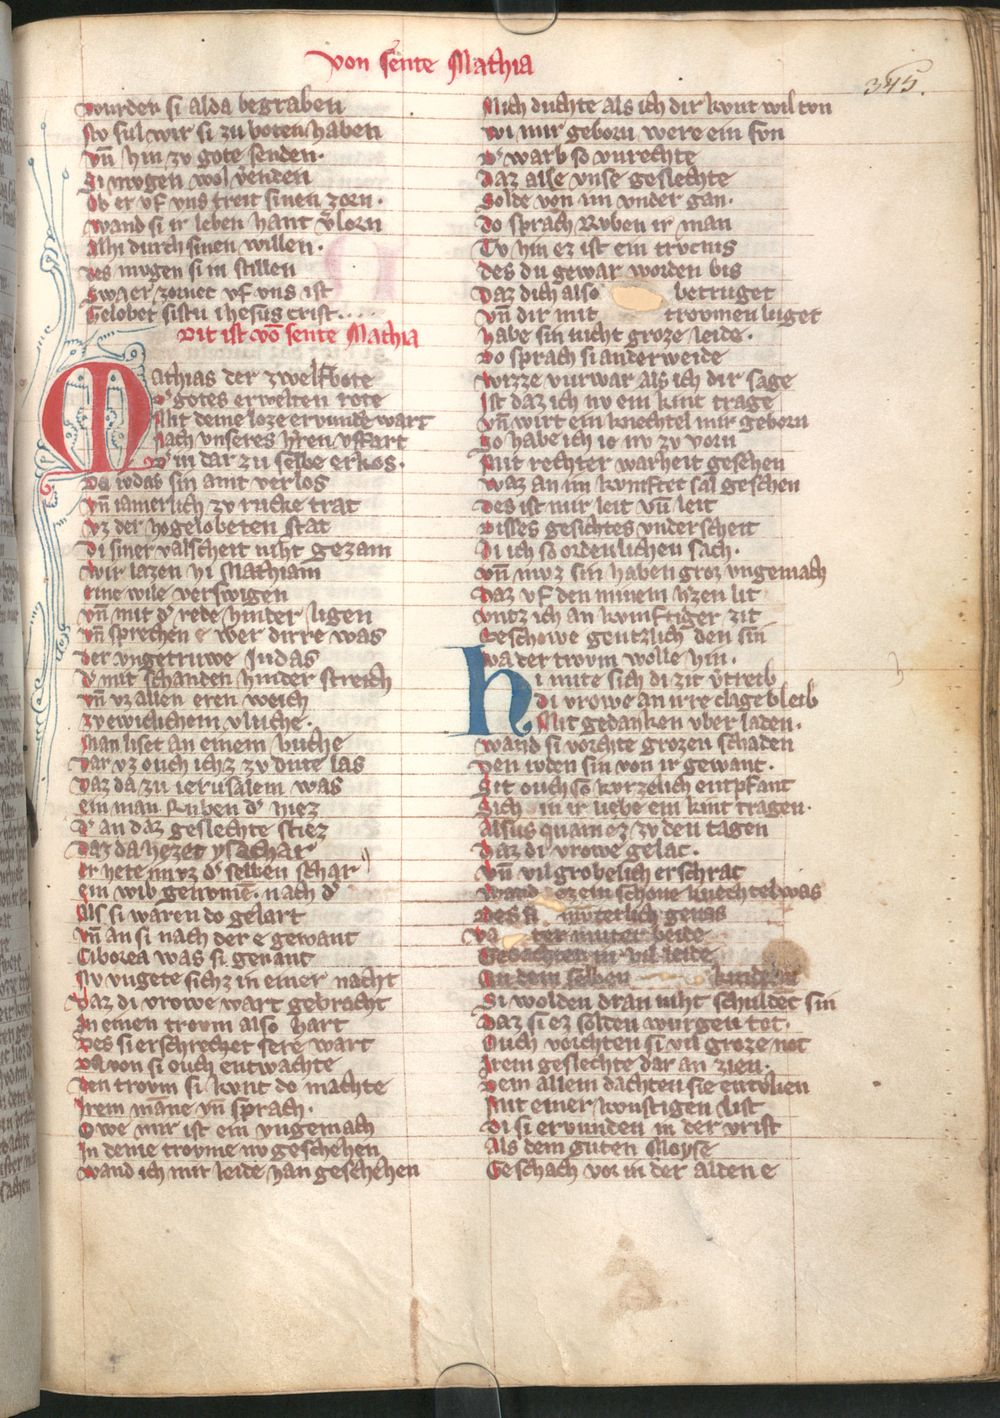 von sente Mathia
345.
wurden si alda begraben
Nv sul wir si zu boten haben
vn̄ hin zv gote senden.
Si mvgen wol venden
Ob er vf vns treit sinen zorn.
wand si ir leben hant v̄lorn
Alhi durch sinen willen.
des mvgen si in stillen
Swa er zornet vf vns ist
Gelobet sistu ihesus crist...
Dit ist vō sente Mathia
Mathias der zwelfbote
d' gotes erwelten rote
Mit deme loze ervunde wart
Nach vnseres h̄ren vffart
D' in dar zu selbe erkos.
Do iudas sin amt verlos
vn̄ iamerlich zv rucke trat
vz der hogelobeten stat
Di siner valscheit niht gezam
wir lazen hi Mathiam
eine wile verswigen
vn̄ mit d' rede hinder ligen
vn̄ sprechen e wer dirre was
der vngetruwe Iudas
d' mit schanden hinder streich
vn̄ vz allen eren weich
zv ewiclichem vluche.
Man liset an einem buche
Dar vz ouch ichz zv dute las
Daz da zu ierusalem was
ein man Ruben d' hiez
d' an daz geslechte stiez
Daz da hezet ysachar
er hete im vz d' selben schar
ein wib genomē. nach d'
Als si waren do gelart
vn̄ an si nach der e gewant
Ciborea was si genant
Nv vugete sichz in einer nacht
Daz di vrowe wart gebracht
In einen trovm also hart
Des si erschrecket sere wart
Da von si ouch entwachte
den trovm si kvnt do machte
Irem māne vn̄ sprach.
Owe mir ist ein vngemach
In deme trovme nv geschehen
wand ich mir leide han geschehen
Mich duchte als ich dir kvnt wil tvn
wi mir geborn were ein svn
D' warb so vnrechte
Daz alle vnse geslechte
Solde von im vnder gan.
Do sprach Rvben ir man
Tv hin ez ist ein trvcnis
des du gewar worden bis
Daz dich also betruget
vn̄ dir mit trovmen luget
habe sin nicht groze leide.
Do sprach si anderweide
wizze vurwar als ich dir sage
Ist daz ich nv ein kint trage
vn̄ wirt ein knechtel mir geborn
So habe ich io nv zv vorn
Mit rechter warheit gesehen
waz an im kvmftec sal geschen
Des ist mir leit vn̄ leit
Disses gesichtes vnderscheit
Di ich so ordenlichen sach.
vn̄ mvz sin haben groz vngemach
Daz vf den minem h̄zen lit
vntz ich an kvmftiger zit
Beschowe gentzlich den sin
wa der trovm wolle hin.
hi mite sich di zit v̄treib
di vrowe an irre clage bleib
Mit gedanken vber laden.
wand si vorchte grozen schaden
Den iuden sin von ir gewant.
Sit ouch so kvrzelich entpfant
Sich in ir liebe ein kint tragen.
Alsus quam ez zv den tagen
Daz di vrowe gelac.
vn̄ vil grobelich erschrac
wand ez ein schone knechtel was
Des si mvterlich genas
va ter muter beide
Gedachten in vil leide
An dem selben kindelin
Si wolden dran niht schuldec sin
Daz si ez solden wurgen tot.
Ouch vorchten si vil groze not
Irem geslechte dar an zien.
Dem allem dachten sie entvlien
Mit einer kvnstigen list
Di si ervunden in der vrist
Als dem guten Moyse
Geschach vor in der alden e